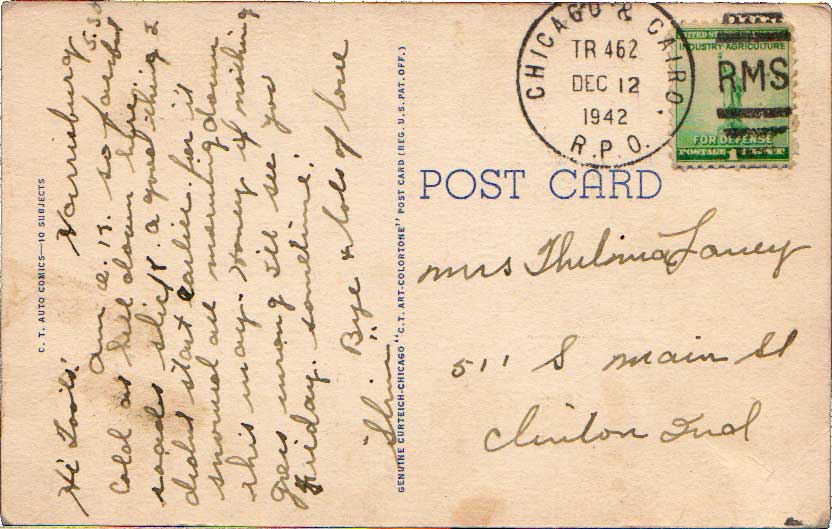 Harrisburg
5:30
Hi Toots!
am O.K. so far but
Cold as hell down here.
roads slick. a good thing I
didnt start earlier. for it
snowed all morning down
this way. Honey if nothing
goes wrong I'll see you
Friday. sometime.
Bye & lots of love
"Slim"
C. T. AUTO COMICS—10 SUBJECTS
GENUINE CURTEICH-CHICAGO "C. T. ART-COLORTONE" POST CARD (REG. U. S. PAT. OFF.)
CHICAGO & CAIRO.
TR 462
DEC 12
1942
R.P.O.
RMS
UNITED STATES
INDUSTRY-AGRICULTURE
FOR DEFENSE
POSTAGE 1 CENTS
POST CARD
Mrs Thelma Laney
511 S Main St
Clinton Ind